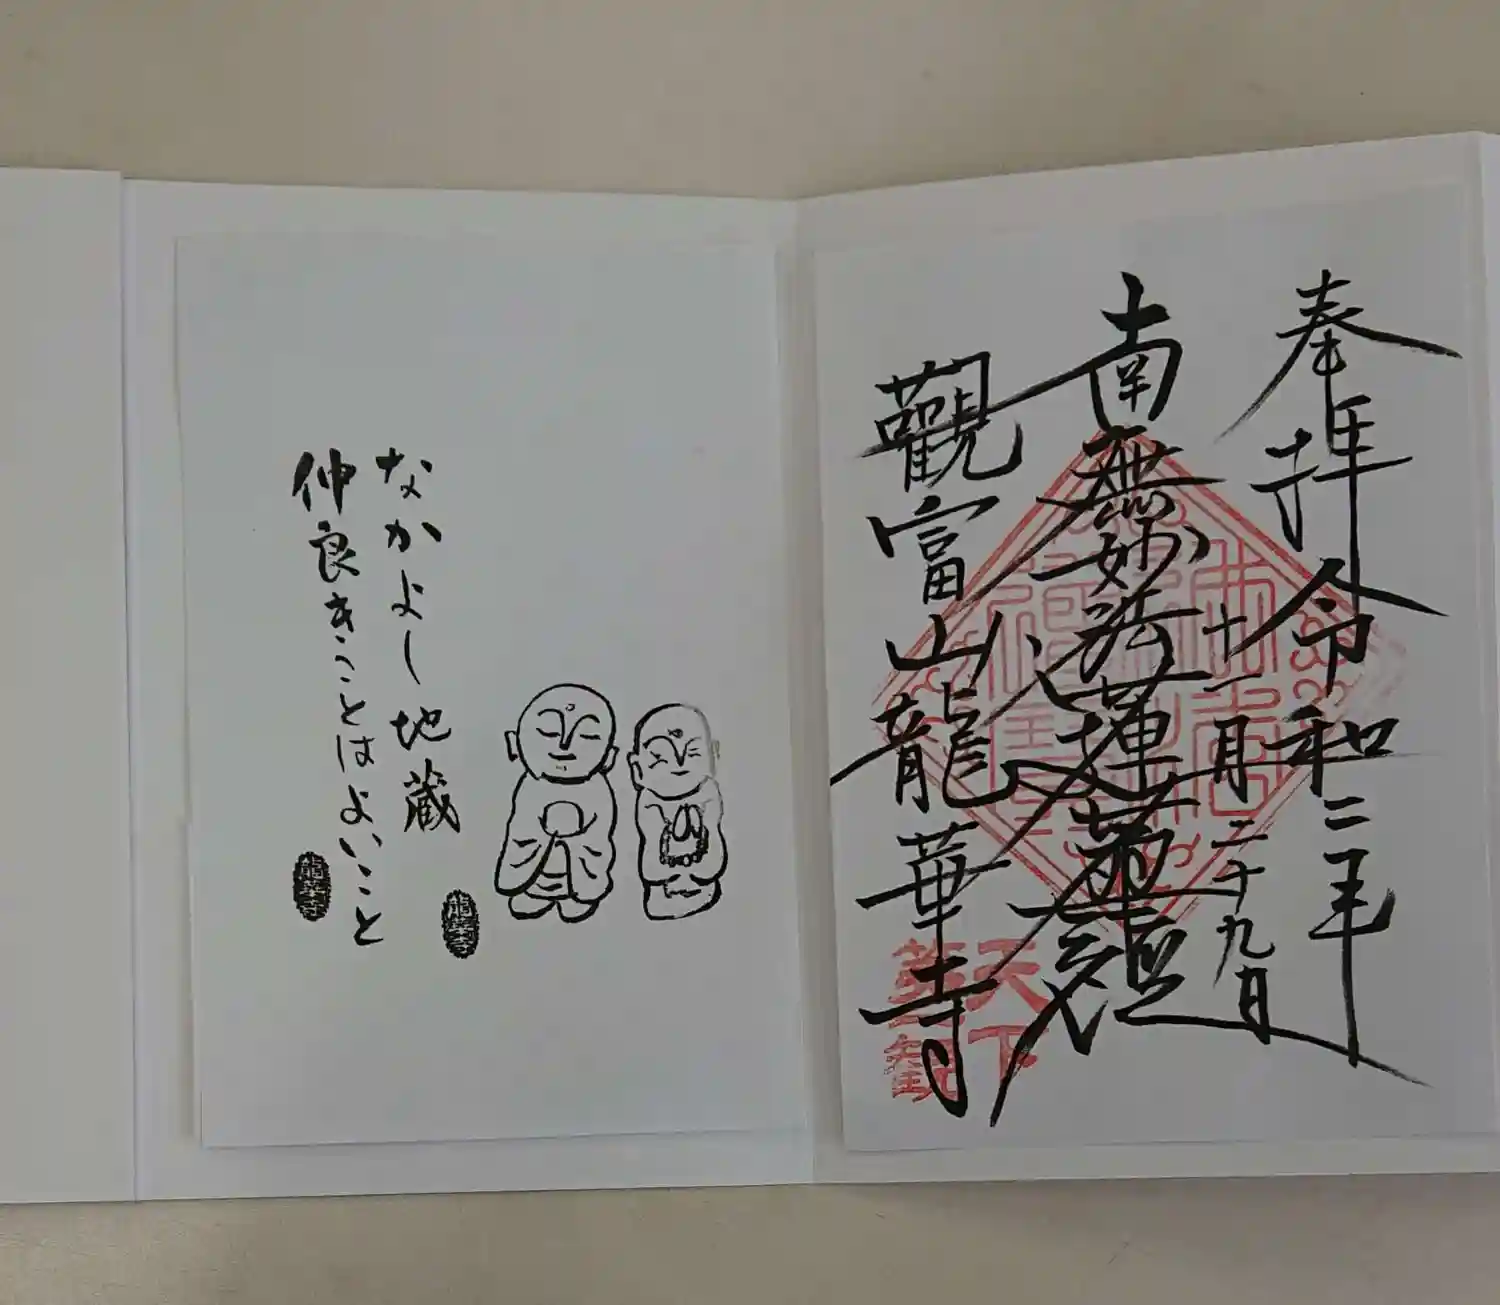 奉拝 令和二年
十一月二十九日
南無妙法蓮華経
觀富山龍華寺
天下
なかよし地蔵
仲良きことはよいこと
龍華寺